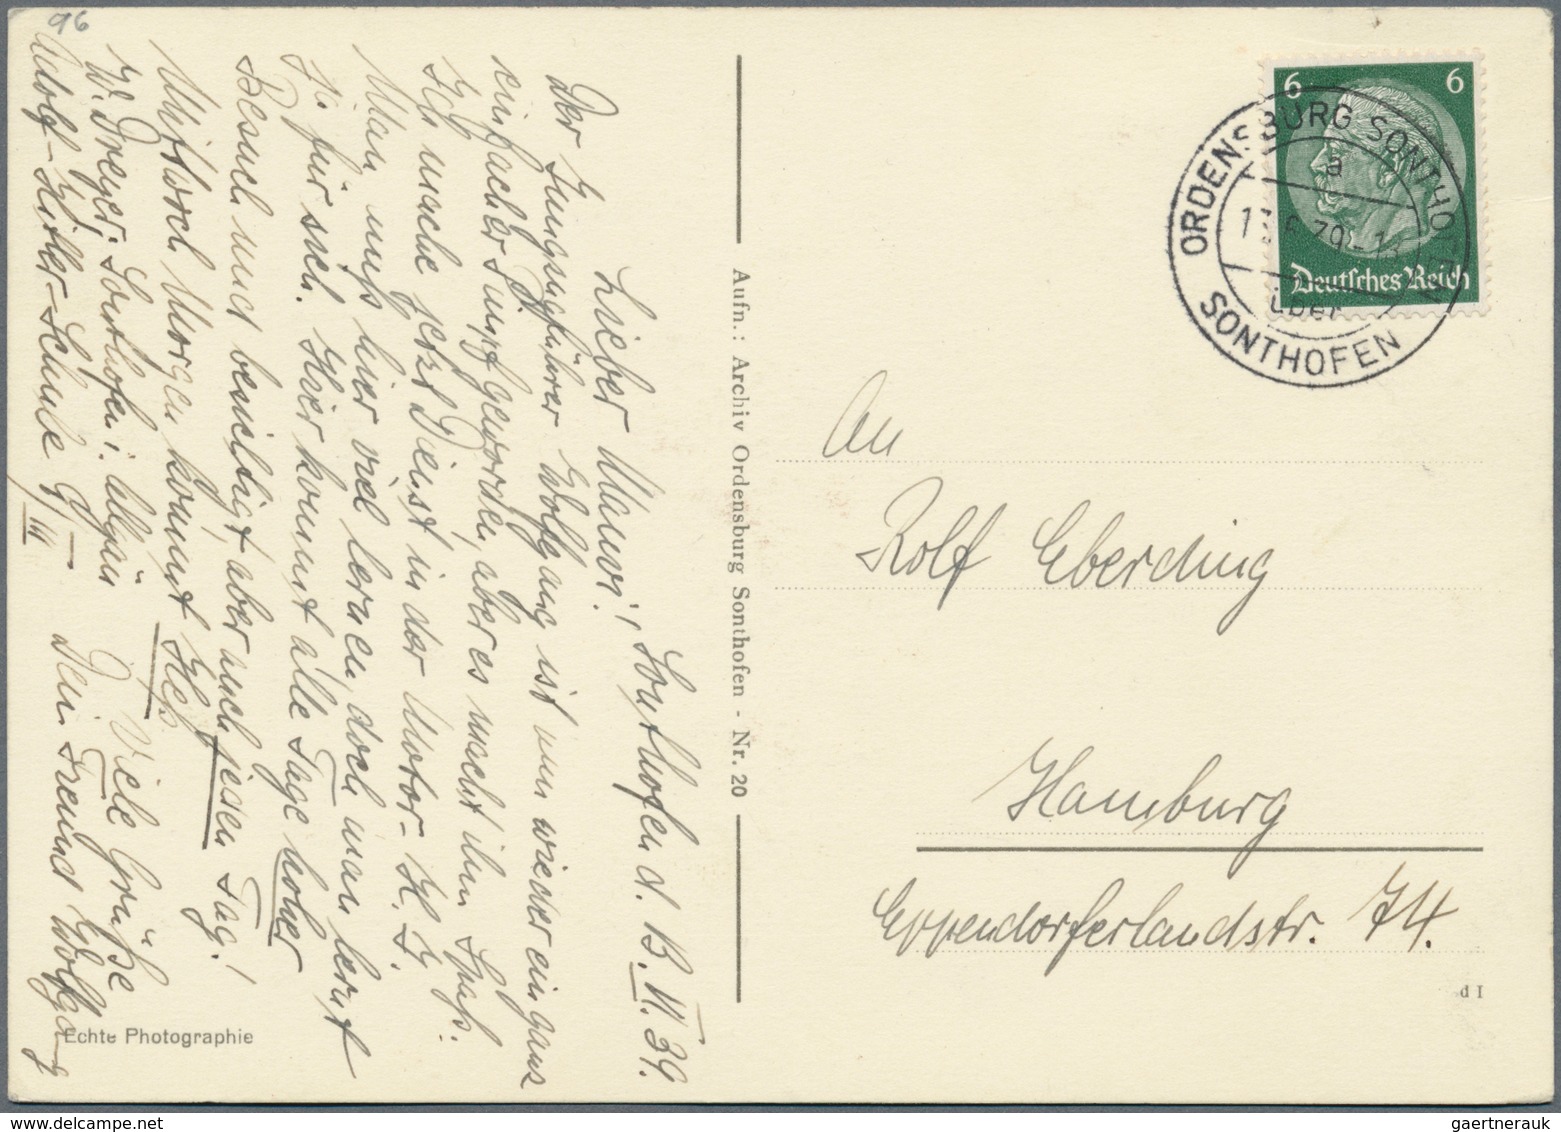 96
Lieber Manni!, Sonthofen d. 13. VI. 39.
Der Jungzugführer Wolfgang ist nun wieder ein ganz
einfacher Pimpf geworden, aber es macht ihm Spaß.
Ich mache jetzt Dienst in der Motor-H.J.
Man muß hier viel lernen, doch man lernt
ja für sich. Hier kommt alle Tage hoher
Besuch und besichtigt, aber auch jeden Tag!
Morgen kommt Heß
Viele Grüße
Dein Freund Wolfgang
W. Dreyer, Sonthofen i. Allgäu
Adolf-Hitler-Schule
Echte Photographie
Aufn.: Archiv Ordensburg Sonthofen - Nr. 20
6 6
Deutsches Reich
ORDENSBURG SONTHOFEN
a
über
SONTHOFEN
An
Rolf Eberding
Hamburg
Eppendorferlandstr. 74.
d I
gaertnerauk